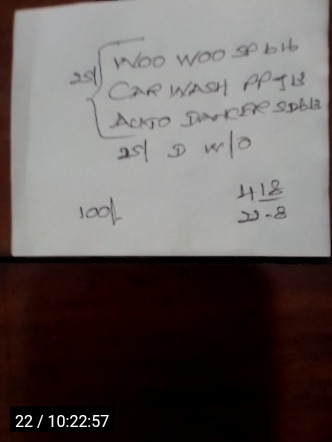 25/ WOO WOO SP b 16
CAR WASH PP J 13
DANCER SD b 13
25/ D W/O
100/
4 18
22-8
22 / 10:22:57